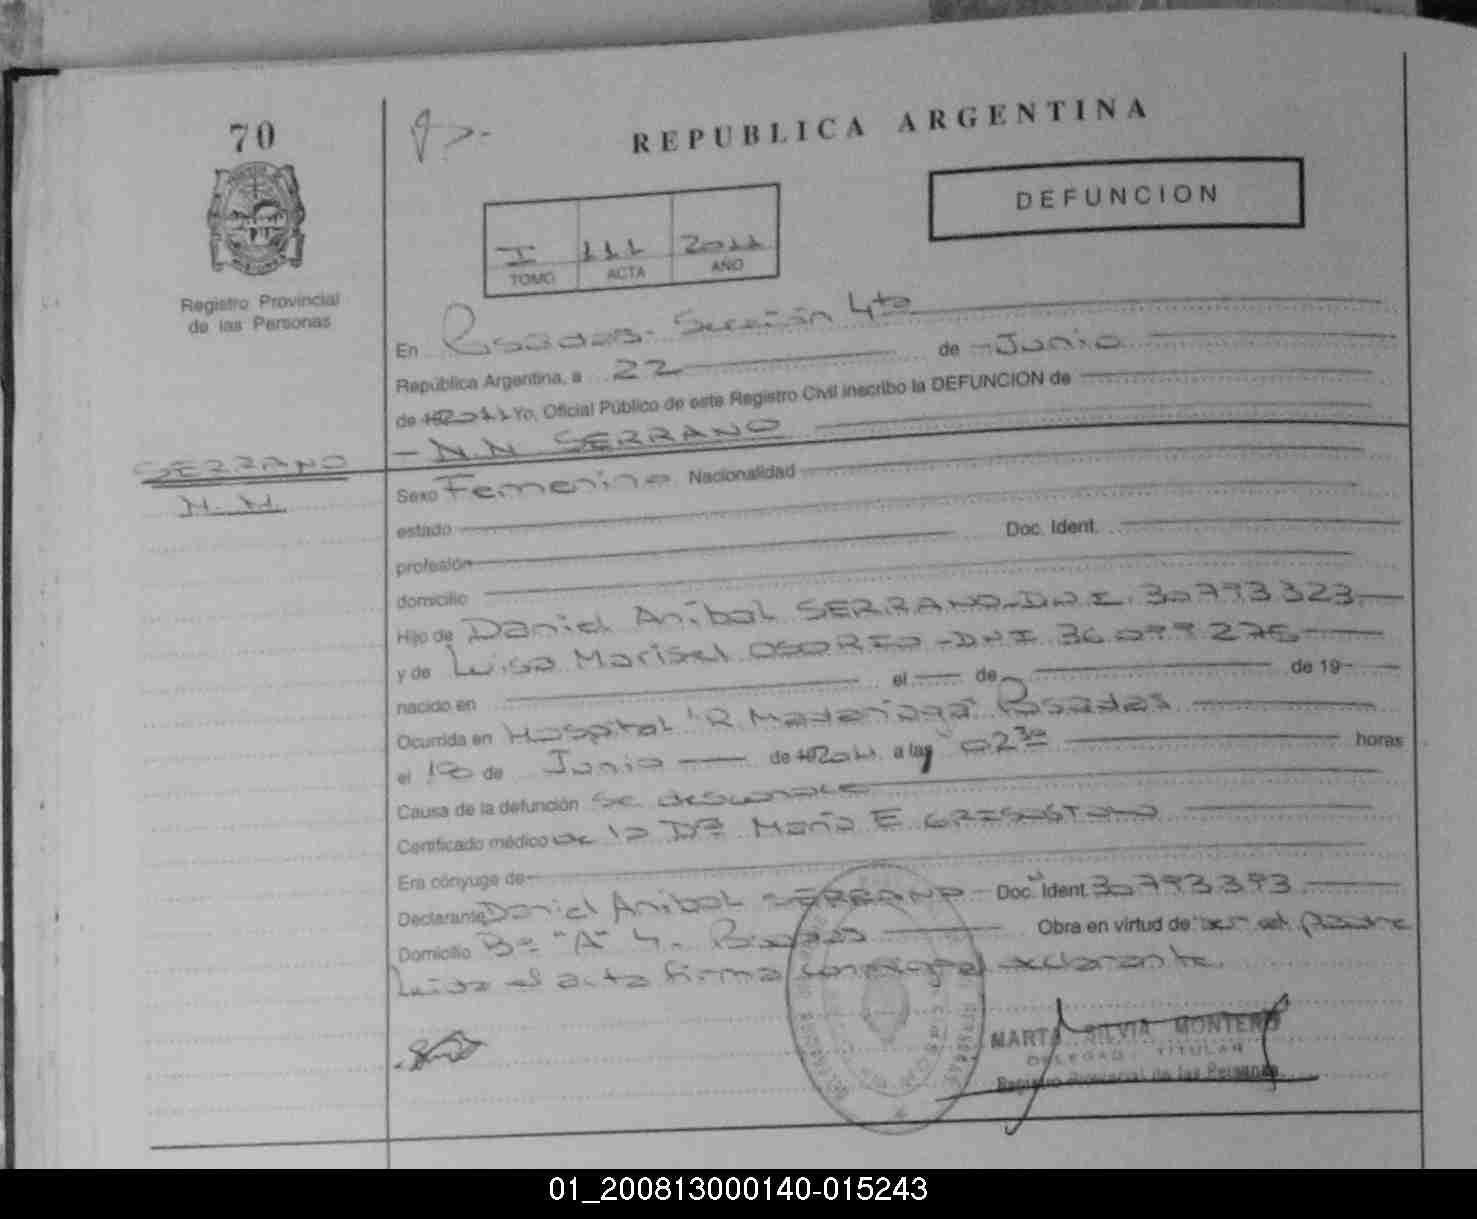 70
REPUBLICA ARGENTINA
DEFUNCION
I 111 2011
TOMO ACTA AÑO
Registro Provincial
de las Personas
En Posadas - Sección 4ta
República Argentina, a 22 de Junio
de 2011 Yo, Oficial Público de este Registro Civil inscribo la DEFUNCION de
- N.N. SERRANO
SERRANO
N. N.
Sexo Femenino Nacionalidad
estado
profesión Doc. Ident.
domicilio
Hijo de Daniel Anibal SERRANO - D.N.I. 30.793.323
y de Luisa Marisel OSORIO - DNI 36.099.276
nacido en el de de 19
Ocurrida en Hospital "R. Madariaga" Posadas
el 18 de Junio de 2011 a las 02 30 horas
Causa de la defunción se desconoce
Certificado médico de la Dra Maria E.
Era cónyuge de
Declarante Daniel Anibal SERRANO Doc. Ident. 30793393
Domicilio Bº "A" 4. Posadas Obra en virtud de ser el padre
Leida el acta firma conmigo el declarante.
MARTA SILVIA MONTERO
DELEGADA TITULAR
Registro Provincial de las Personas
01_200813000140-015243